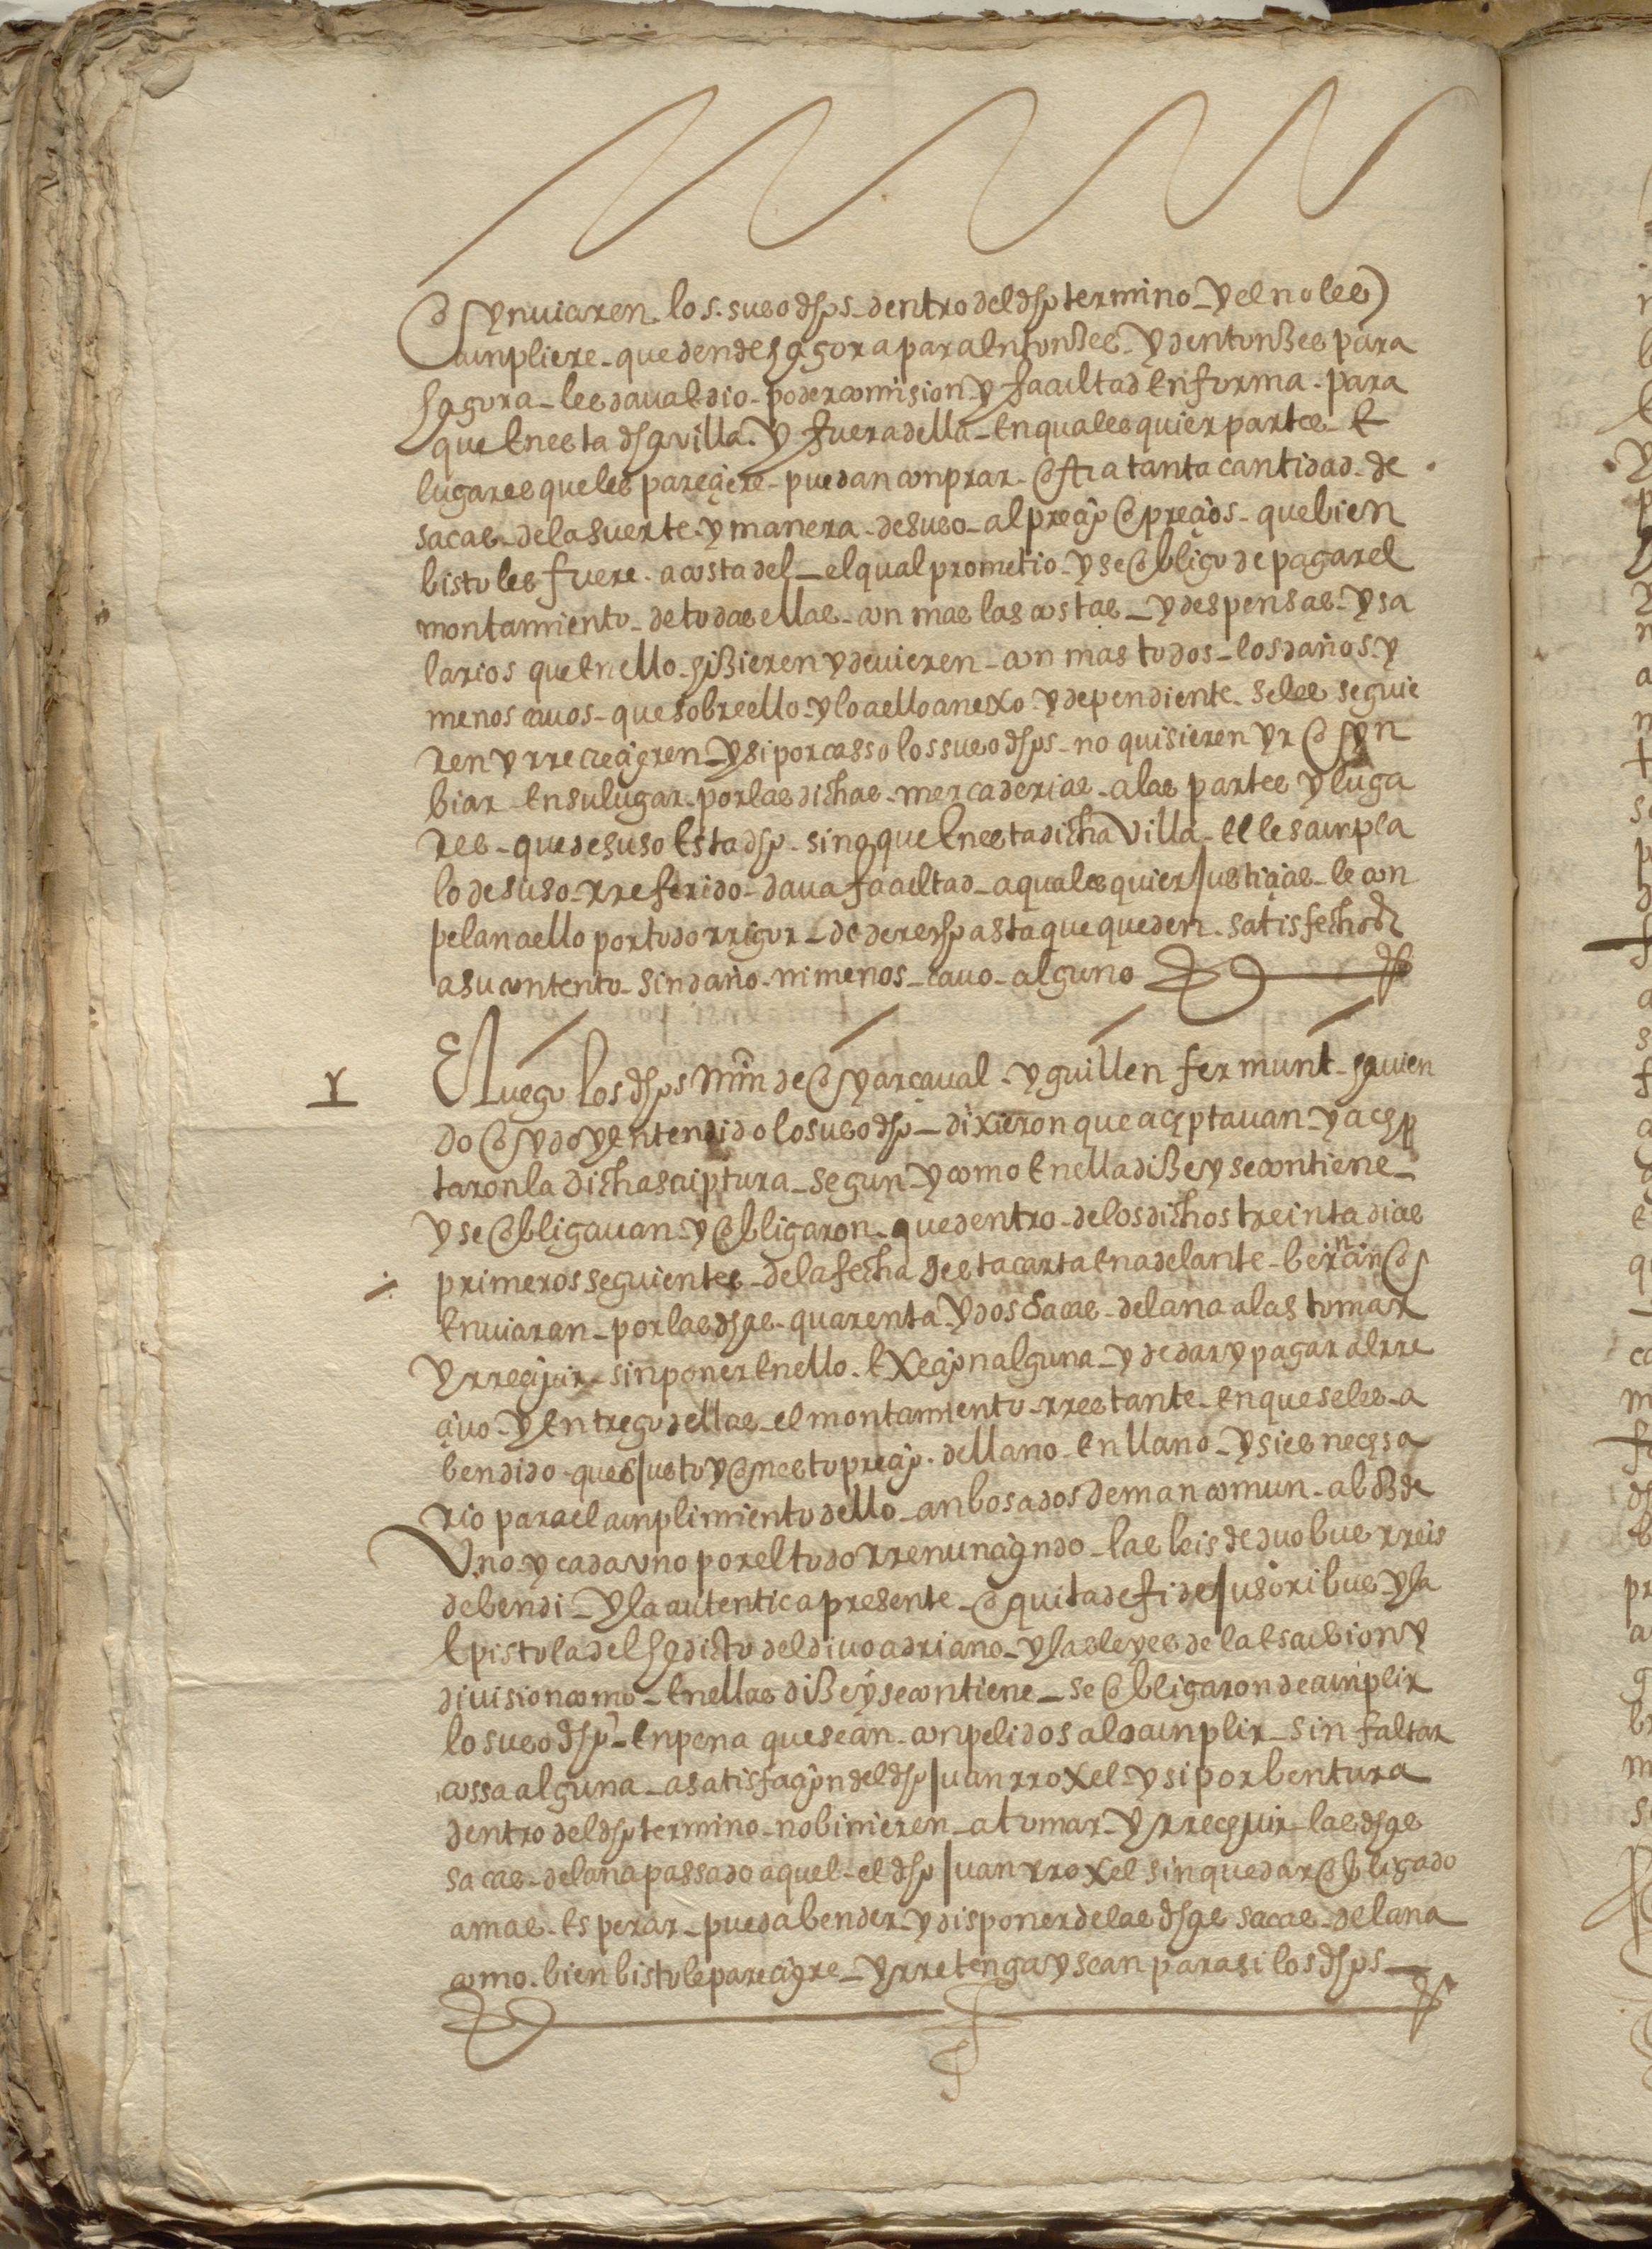 o ynviaren los suso dhos dentro del dho termino y el no les
cunpliere que dende agora para entonzes y dentonzes para
agora les dava e dio poder comision y facultad en forma para
que en esta dha villa y fuera della en qualesquier partes e
lugares que les pareçiere puedan conprar otra tanta cantidad de
sacas de la suerte y manera de suso al preçio o preçios que bien
bisto les fuere a costa del el qual prometio y se obligo de pagar el
montamiento de todas ellas con mas las costas y despensas y sa
larios que en ello hizieren y devieren con mas todos los daños y
menoscavos que sobre ello y lo a ello anexo y dependiente se les seguie
ren y rrecreçieren y si por casso los suso dhos no quisieren yr o yn
biar en su lugar por las dichas mercaderias a las partes y luga
res que de suso esta dho sino que en esta dicha villa el les cunpla
lo de suso rreferido dava facultad a qualesquier justiçias le con
pelan a ello por todo rrigor de derecho asta que queden satisfechos
a su contento sin daño ni menoscavo alguno
E luego los dhos Min de oyarçaval y guillen fermunt havien
do oydo y entendido lo suso dho dixieron que açeptavan y açep
taron la dicha scriptura segun y como en ella dize y se contiene
y se obligavan y obligaron que dentro de los dichos treinta dias
primeros seguientes de la fecha desta carta en adelante bernan o
enviaran por las dhas quarenta y dos sacas de lana a las tomar
y rreçivir sin poner en ello exeçion alguna y de dar y pagar al rre
çivo y entrego dellas el montamiento rrestante en que se les a
bendido ques justo y onesto preçio de llano en llano y si es neçesa
rio para el cunplimiento dello anbos a dos de mancomun a boz de
uno y cada uno por el todo rrenunçiando las leis de duobus rreis
debendi y la autentica presente o quita de fide jusoribus y la
epistola del hedicto del divo adriano y las leyes de la escusion y
division como en ellas dize y se contiene se obligaron de cunplir
lo suso dho en pena que sean conpelidos a lo cunplir sin faltar
cossa alguna a satisfaçion del dho juan rroxel y si por bentura
dentro del dho termino no binieren a tomar y rreçevir las dhas
sacas de lana passado aquel el dho juan rroxel sin quedar obligado
a mas esperar pueda bender y disponer de las dhas sacas de lana
como bien bisto le pareçiere y rretenga y sean para si los dhos